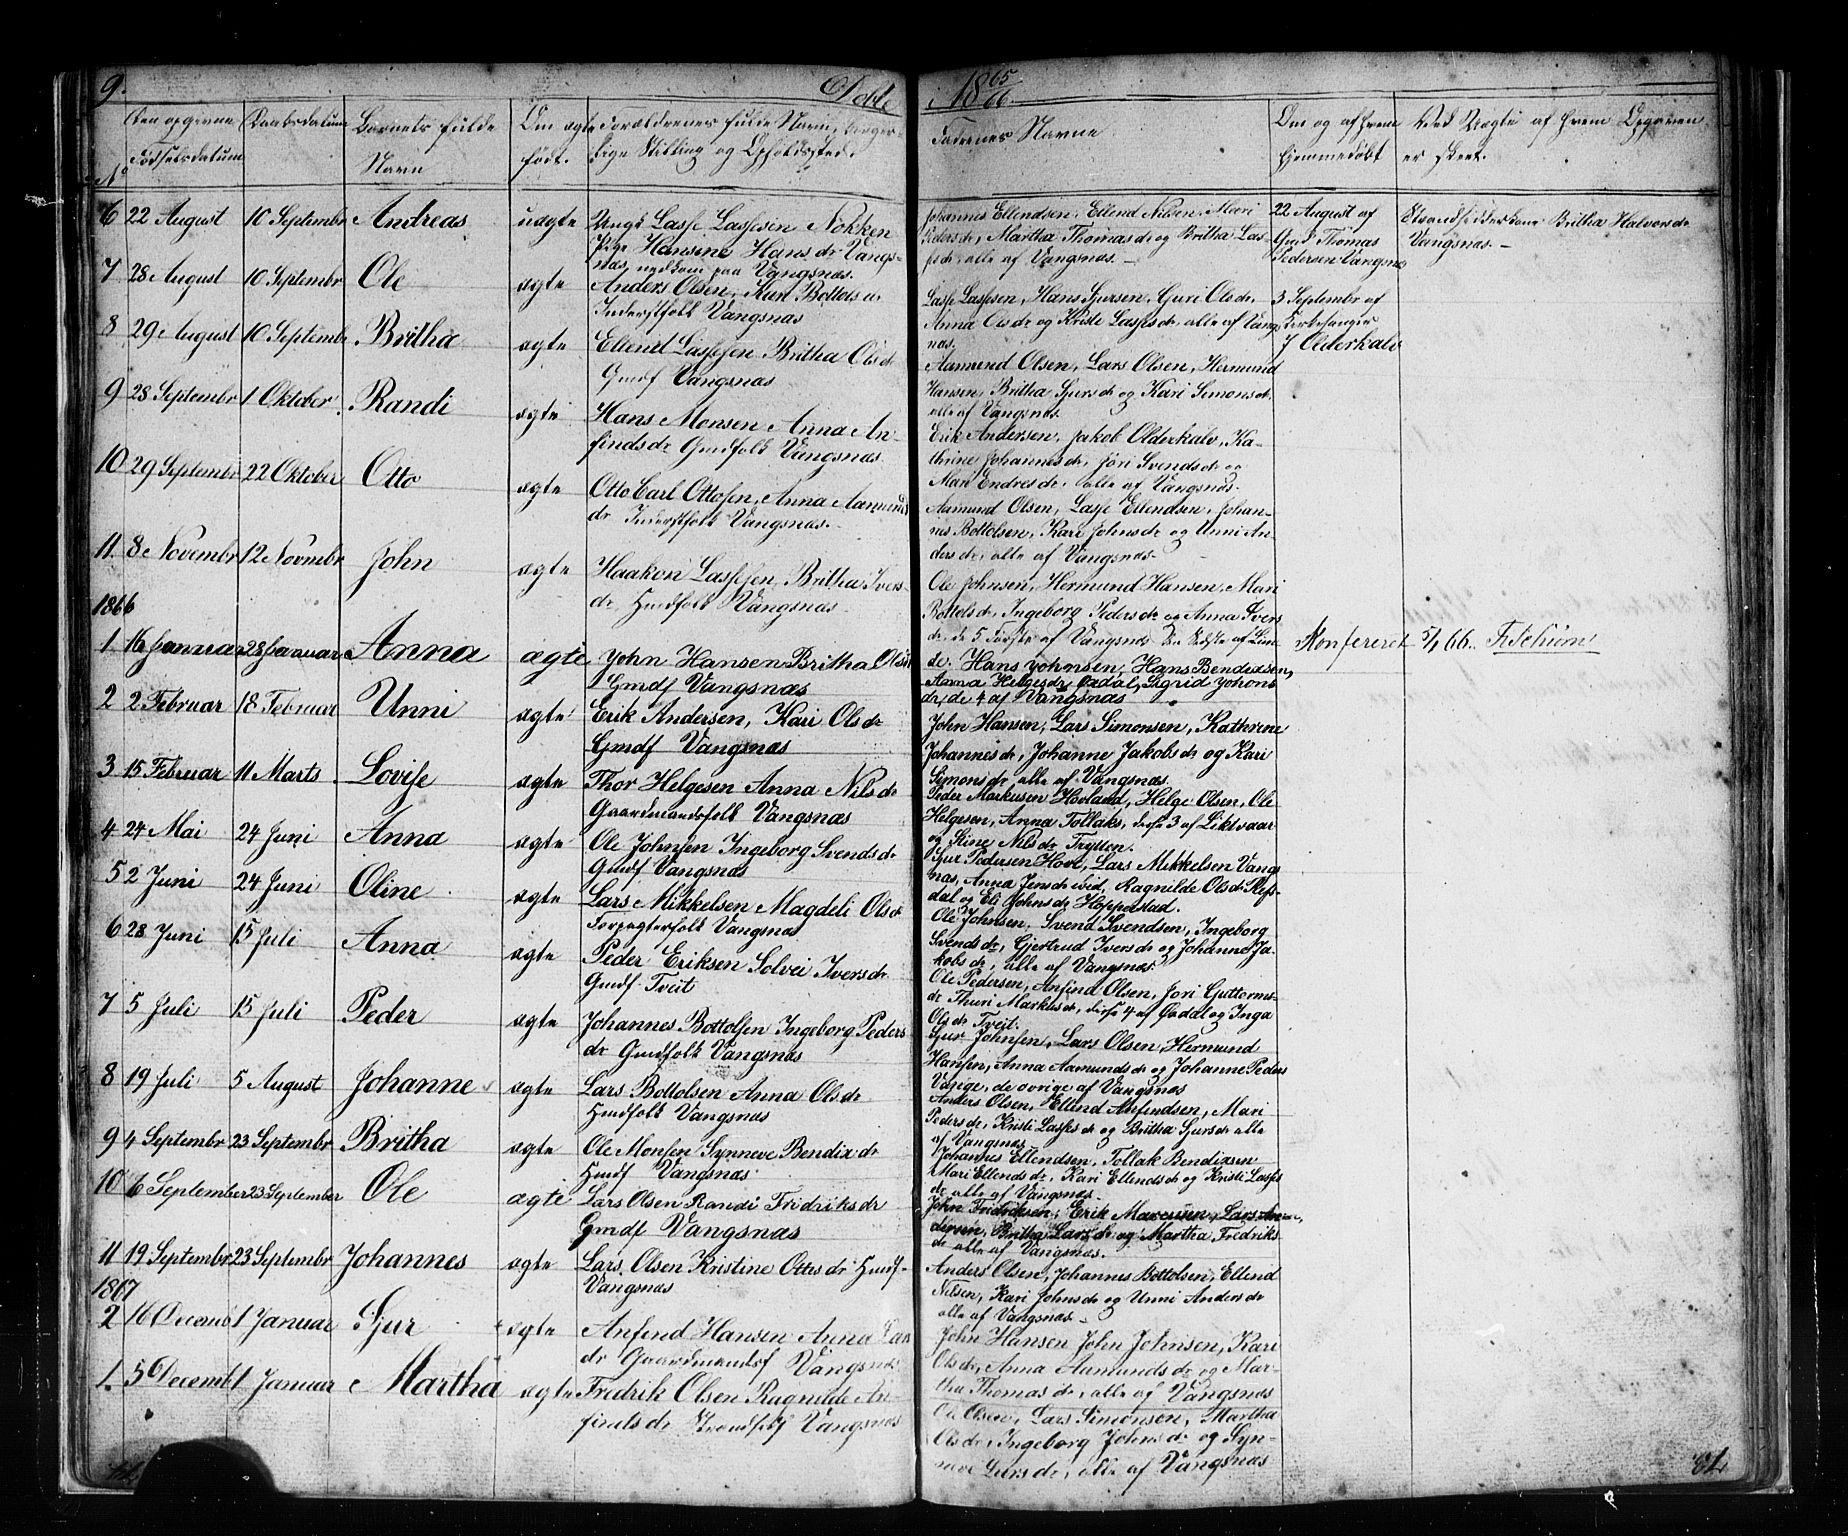 9.
Døbte
i 1865
66.
No
Den opgivne
Fødselsdatum
Daabsdatum
Barnets fulde
Navn
Om ægte
født.
Forældrenes fulde Navn, borger-
lige Stilling og Opholdssted.
Faddernes Navne
Om og af hvem
hjemmedøbt
Ved Uægte af hvem Opgaven
er skeet.
6 22 August 10 Septembr Andreas uægte Ungk Lasse Lassesen Nøkken
Pige Hansine Hansdr Vangs-
næs
Johannes Ellendsen, Ellend Nilsen, Mari
Pedersdr, Martha Thomasdr og Britha Las-
sedr, alle af Vangsnæs. -
22 August af
Gmd Thomas
Pedersen Vangsnæs
Britha Halvorsdr
Vangsnæs. -
7 28 August 10 Septembr Ole ægte Anders Olsen, Kari Bottolsd.
Inderstfolk Vangsnæs
Lasse Lassesen, Hans Sjursen, Guri Olsdr,
Anna Olsdr og Kristi Lassesdr, alle af Vangs-
næs.
3 Septembr af
Kirkesanger
J Olderkalv
8 29 August 10 Septembr Britha ægte Ellend Lassesen Britha Olsdr
Gmdf Vangsnæs
Aamund Olsen, Lars Olsen, Hermund
Hansen, Britha Sjursdr og Kari Simonsdr.
alle af Vangsnæs.
9 28 Septembr 1 Oktober Randi ægte Hans Monsen Anna An-
findsdr Gmdfolk Vangsnæs
Erik Andersen, Jakob Olderkalv, Ka-
thrine Johannesdr, Jori Svendsdr og
Mari Endresdr, alle af Vangsnæs.
10 29 Septembr 22 Oktober Otto ægte Otto Carl Ottosen, Anna Aamunds
dr Inderstfolk Vangsnæs. -
Aamund Olsen, Lasse Ellendsen, Johan-
nes Bottolsen, Kari Johnsdr og Unni An-
dersdr, alle af Vangsnæs.
11. 8 Novembr 12 Novmbr John ægte Haakon Lassesen, Britha Ivers
dr Hmdfolk Vangsnæs.
Ole Johnsen, Hermund Hansen, Mari
Bottolsdr, Ingeborg Pedersdr og Anna Ivers
dr, de 5 Første af Vangsnæs
1866
1 16 Januar 28 Januar Anna ægte John Hansen Britha Olsdr
Gmdf Vangsnæs
Hans Johnsen, Hans Bendixsen,
Anna Helgesdr Ørdal, Sigrid Johans
dr, de 4 af Vangsnæs
Konfereret 5/7 66. F. Schiøm
2 2 Februar 18 Februar Unni ægte Erik Andersen, Kari Olsdr
Gmdf Vangsnæs
John Hansen, Lars Simonsen, Kathrine
Johannesdr, Johanne Jakobsdr og Kari
Simonsdr, alle af Vangsnæs.
3 15 Februar 11 Marts Lovise ægte Thor Helgesen Anna Nilsdr
Gaardmandsfolk Vangsnæs
Peder Markusen Hovland, Helge Olsen, Ole
Helgesen, Anna Tollaks, disse 3 af Liktvaar
og Stine Nilsdr Trytten.
4 24 Mai 24 Juni Anna ægte Ole Johnsen Ingeborg Svendsdr
Gmdf Vangsnæs
Sjur Pedersen Hove, Lars Mikkelsen Vangs
næs, Anna Jensdr ibid, Ragnilde Olsdr Refs-
dal og Eli Johnsdr Hopperstad.
5 2 Juni 24 Juni Oline ægte Lars Mikkelsen Magdeli Olsdr
Forpagterfolk Vangsnæs
Ole Johnsen, Svend Svendsen, Ingeborg
Svendsdr, Gjertrud Iversdr og Johanne Ja-
kobsdr, alle af Vangsnæs.
6 28 Juni 15 Juli Anna ægte Peder Eriksen Solvei Iversdr
Gmdf Tveit
Ole Pedersen, Anfind Olsen, Jori Guttorms-
dr Thuri Markusdr, disse 4 af Ørdal og Inga
Olsdr Tveit.
7 5 Juli 15 Juli Peder ægte Johannes Bottolsen Ingeborg Peders
dr Gmdfolk Vangsnæs
Sjur Johnsen, Lars Olsen, Hermund
Hansen, Anna Aamundsdr og Johanne Peders
Varige, de øvrige af Vangsnæs
8 19 Juli 5 August Johanne ægte Lars Bottolsen Anna Olsdr
Hmdfolk Vangsnæs
Anders Olsen, Ellend Anfindsen, Mari
Pedersdr, Kristi Lassesdr og Britha Sjursdr alle
af Vangsnæs
9 4 Septembr 23 Septembr Britha ægte Ole Monsen Synneve Bendixdr
Hmdf Vangsnæs
Johannes Ellendsen, Tollak Bendixsen
Mari Ellendsdr, Kari Ellendsdr og Kristi Lasses
dr alle af Vangsnæs.
10 6 September 23 September Ole ægte Lars Olsen Randi Fredriksdr
Gmdf Vangsnæs
John Fredriksen, Erik Marcusen, Lars An-
dersen, Britha Larsdr og Martha Fredriks
dr alle af Vangsnæs.
11 19 Septembr 23 Septembr Johannes ægte Lars Olsen Kristine Ottesdr Hmdf-
Vangsnæs
Anders Olsen, Johannes Bottolsen, Ellend
Nilsen, Kari Johnsdr og Unni Andersdr
alle af Vangsnæs
1867
2 16 Decemb 1 Januar Sjur ægte Anfind Hansen Anna Lars
dr Gaardmandsf Vangsnæs
John Hansen John Johnsen, Kari
Olsdr, Anna Aamundsdr og Mar-
tha Thomasdr, alle af Vangsnæs
1. 5 Decemb 1 Januar Martha ægte Fredrik Olsen Ragnilde An-
findsdr Strandsf Vangsnæs
Ole Olsen, Lars Simonsen, Martha
Olsdr, Ingeborg Johnsdr og Syn-
neve Larsdr, alle af Vangsnæs